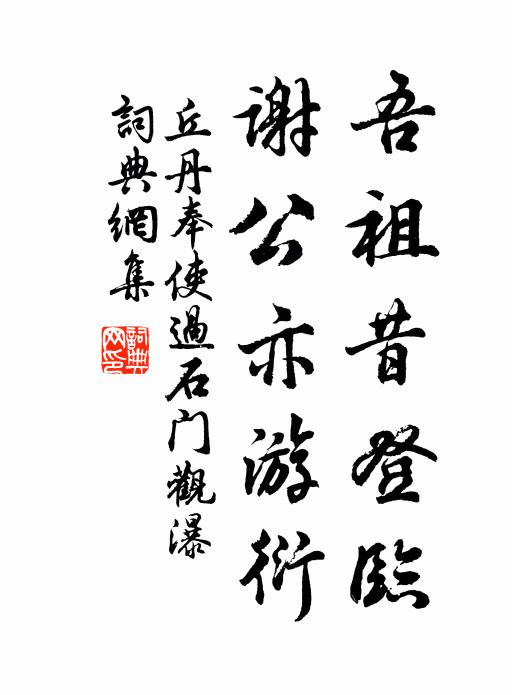 吾祖昔登臨
謝公亦游衍
丘丹奉使過石门觀瀑
詞典網集
詞典网印